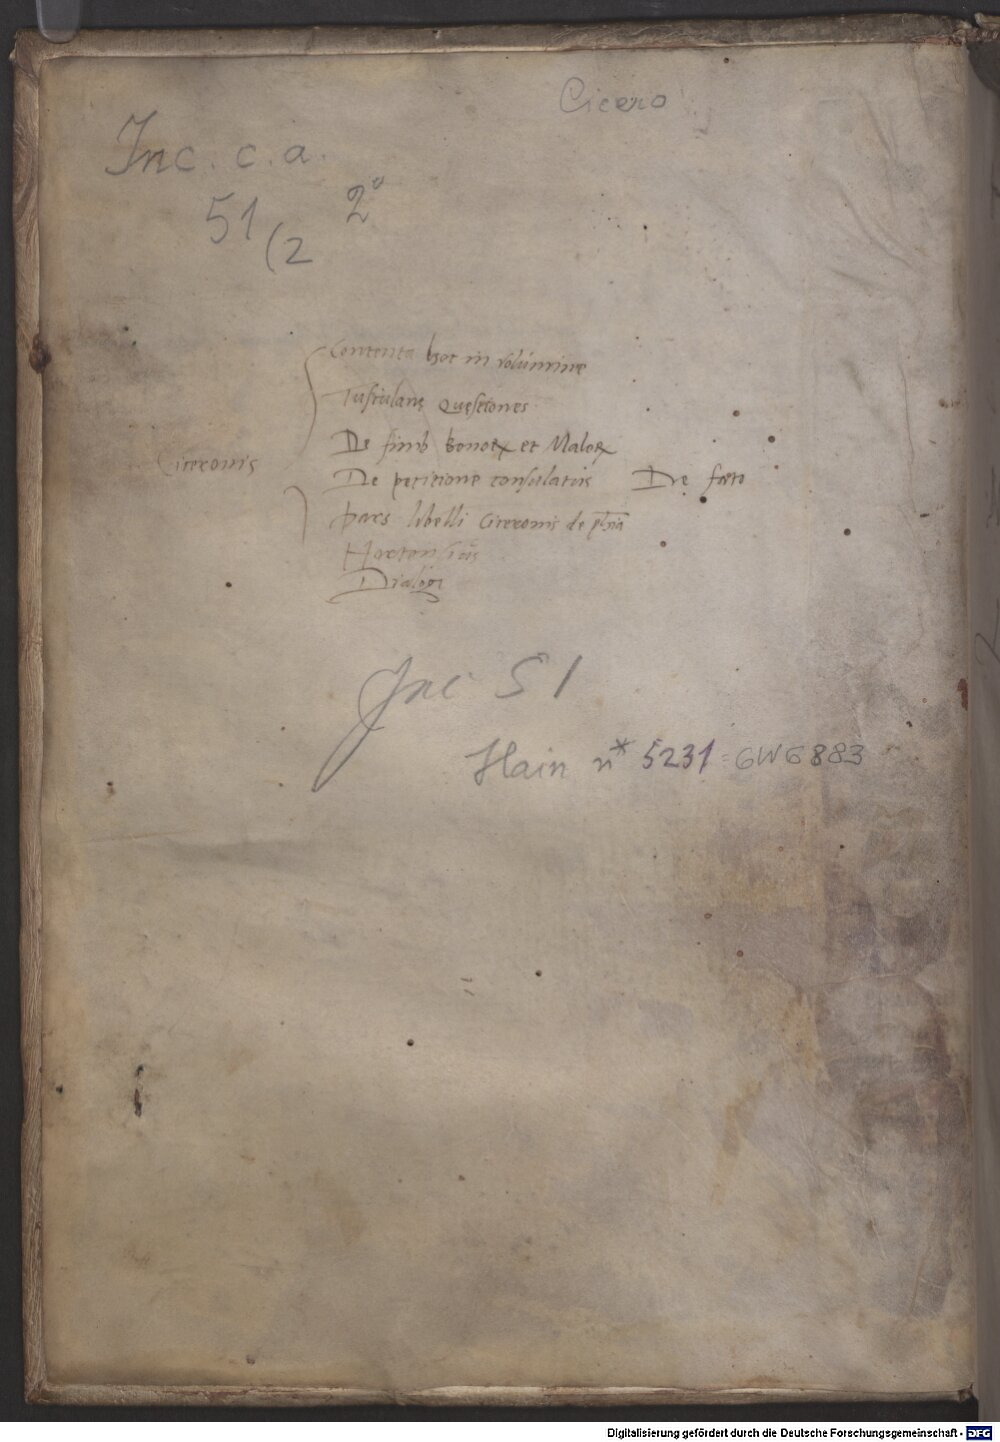 Cicero
Inc. c. a.
51/2 2°
Contenta hoc in volumine
Tusculanę Quęstiones
De finib bonorꝝ et Malorꝝ
Ciceronis
De petitione consulatus De fato
Pars libelli Ciceronis de phīa
Hortensius
Dialogi
Inc 51
Hain n* 5231 = GW 6883
Digitalisierung gefördert durch die Deutsche Forschungsgemeinschaft - DFG